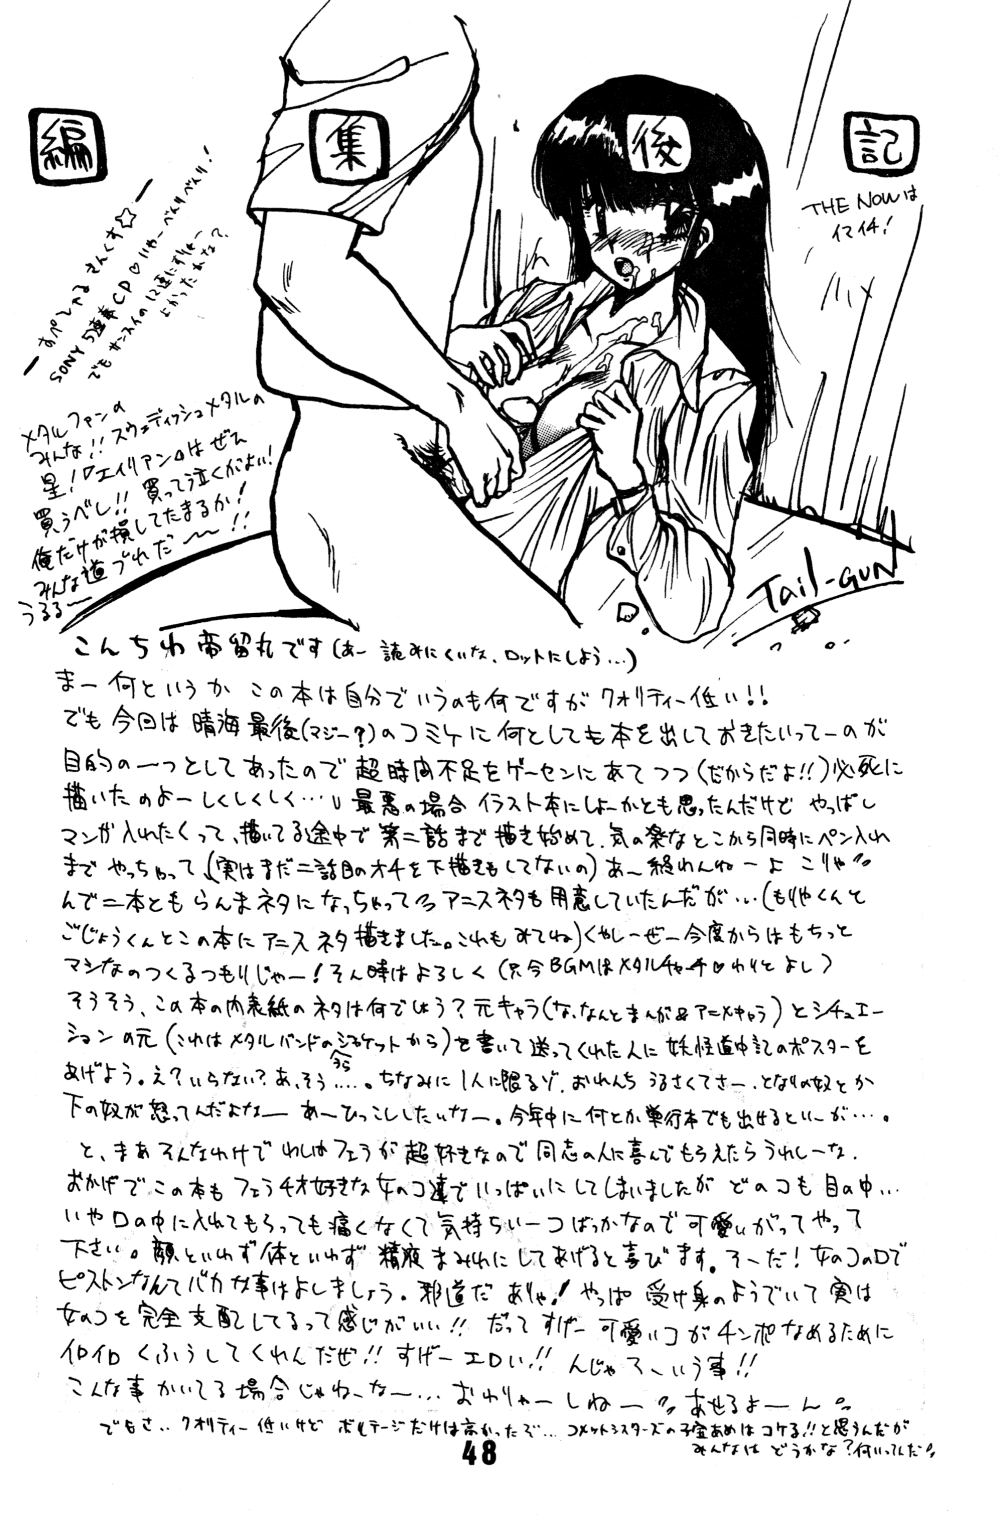 編集後記
THE NOWは
イマイチ!
—すぺしゃるさんくす☆—
SONY 5連奏CP♡いやーべんりべんり!
でもサンスイの12連にすりゃー
よかったかな?
メタルファンの
みんな!!スウェディッシュメタルの
星!「エイリアン」はぜひ
買うべし!!買って泣くがよい!
俺だけが損してたまるか!
みんな道づれだ〜〜!!
うるる〜
Tail-GUN
こんちわ帝留丸です(あー 読みにくいな、ロットにしよう…)
まー何というか この本は自分でいうのも何ですが クオリティー低い!!
でも今回は 晴海最後(マジー?)のコミケに何としても本を出しておきたいってーのが
目的の一つとしてあったので 超時間不足をゲーセンにあてつつ(だからだよ!!)必死に
描いたのよーしくしくしく… 最悪の場合 イラスト本にしよーかとも思ったんだけど やっぱし
マンガ入れたくって、描いてる途中で 第二話まで描き始めて、気の楽なとこから同時にペン入れ
まで やっちゃって、(実はまだ二話目のオチを下描きもしてないの) あー終わんねーよ こりゃ
んで二本とも らんまネタになっちゃって アニスネタも用意していたんだが…(もりやくんと
ごじょうくんとこの本にアニスネタ描きました。これもみてね)くやしーぜー今度からはもちっと
マシなのつくるつもりじゃー!そん時はよろしく(只今BGMはメタルチャーチ♡わりとよし)
そうそう、この本の内表紙のネタは何でしょう?元キャラ(な、なんとまんが&アニメキャラ)とシチュエー
ションの元(これはメタルバンドのジャケットうらから)を書いて送ってくれた人に 妖怪道中記のポスターを
あげよう。え?いらない?あ、そう……。ちなみに1人に限るゾ。おれんち うるさくてさー、となりの奴とか
下の奴が怒ってんだよなー あーひっこししたいなー。今年中に何とか単行本でも出せるといーが…。
と、まあそんなわけで わしはフェラが超好きなので同志の人に喜んでもらえたらうれしーな。
おかげでこの本も フェラチオ好きな女のコ達でいっぱいにしてしまいましたが どのコも目の中…
いや口の中に入れてもらっても痛くなくて気持ちいーコばっかなので可愛いがってやって
下さい。顔といわず体といわず 精液まみれにしてあげると喜びます。そーだ!女のコの口で
ピストンなんてバカな事はよしましょう。邪道だ ありゃ!やっぱ 受け身のようでいて実は
女のコを完全支配してるって感じがいい!!だってすげー可愛いコがチンポなめるために
イロイロくふうしてくれんだぜ!!すげーエロい!!んじゃそーいう事!!
こんな事かいてる場合じゃねーなー… おわりゃーしねー あせるよーん
でもさ‥クオリティー低いけど ボルテージだけは高かったぞ… コメットシスターズの子宝あめはコケる!!と思うんだが
みんなは どうかな?何いってんだ
48